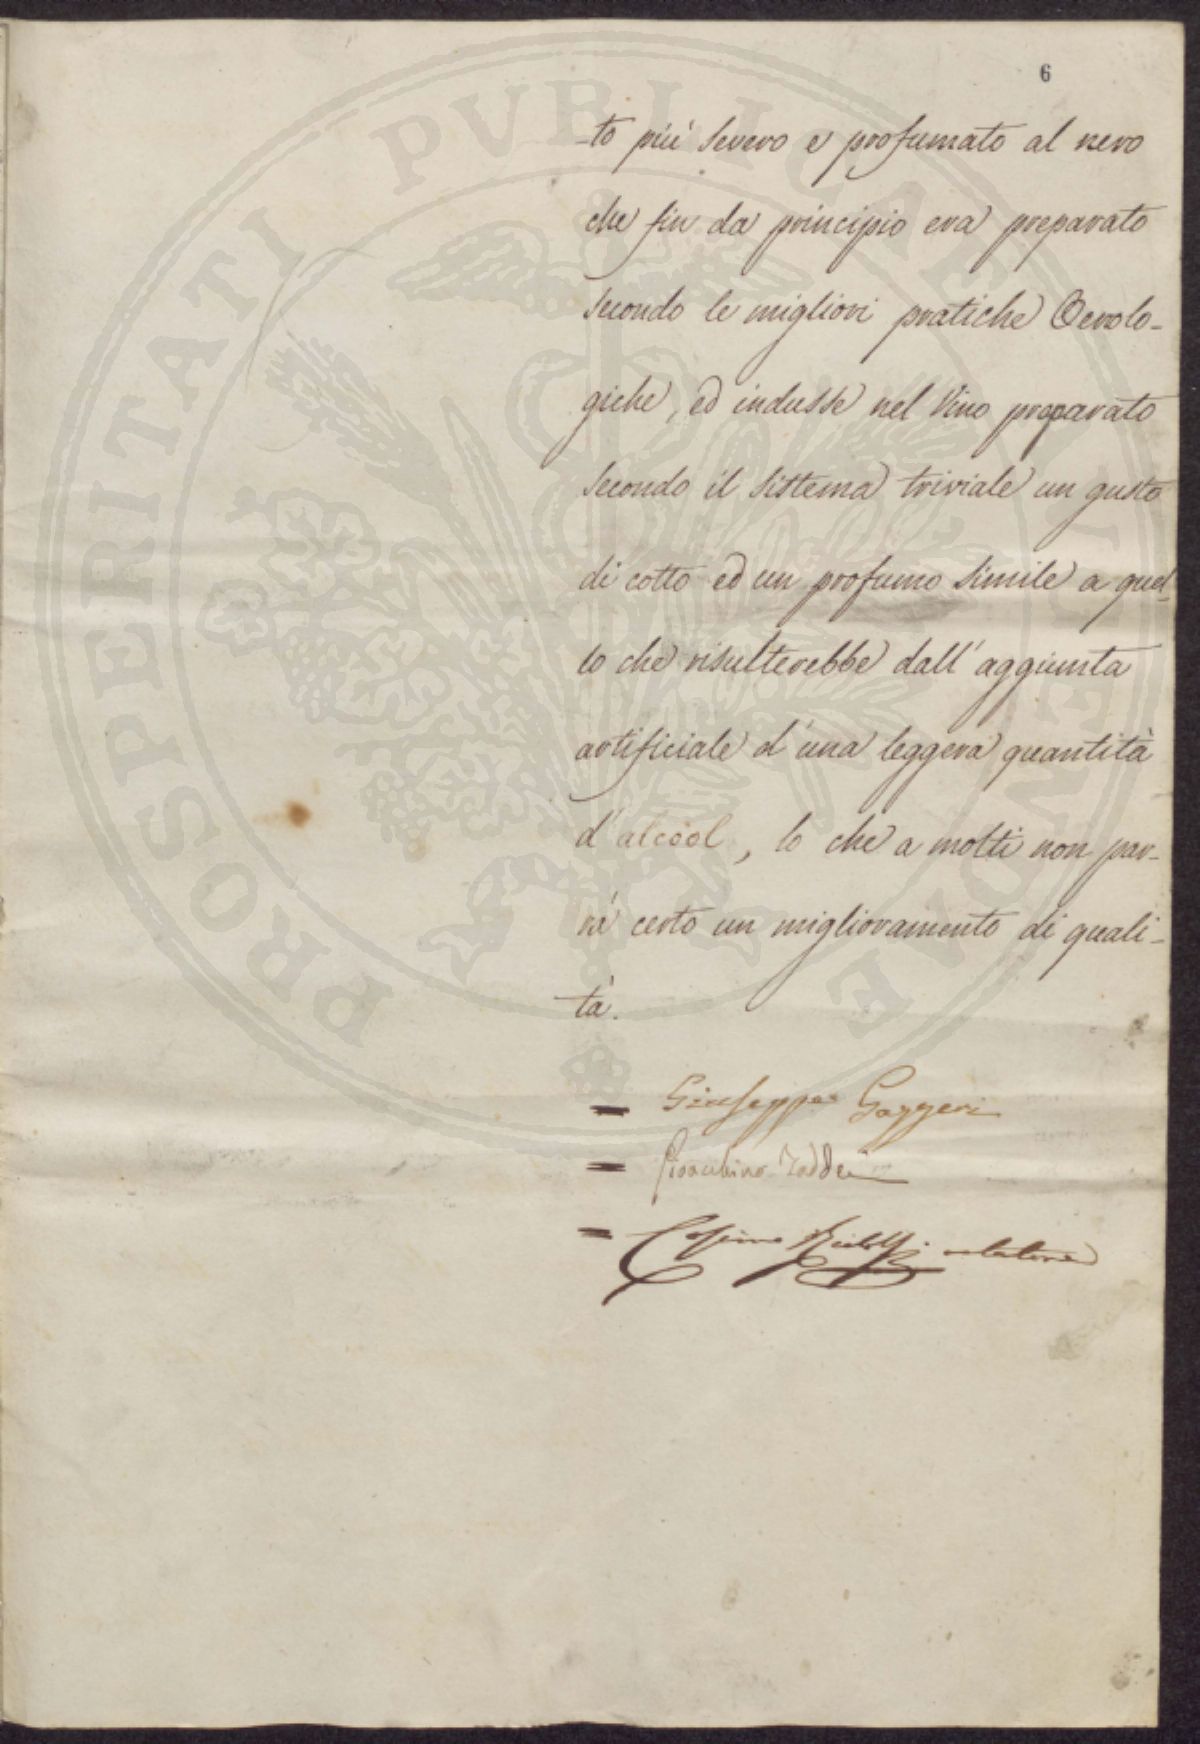 6
-to più severo e profumato al nero
che fin da principio era preparato
secondo le migliori pratiche Oenolo-
giche, ed indusse nel Vino preparato
secondo il sistema triviale un gusto
di cotto ed un profumo simile a quel-
lo che risulterebbe dall'aggiunta
artificiale d'una leggera quantità
d'alcool, lo che a molti non par-
rà certo un miglioramento di quali-
tà.
Giuseppe Gazzeri
Gioacchino Taddei
Cosimo Ridolfi relatore
PROSPERITATI PVBLICAE AVGENDAE